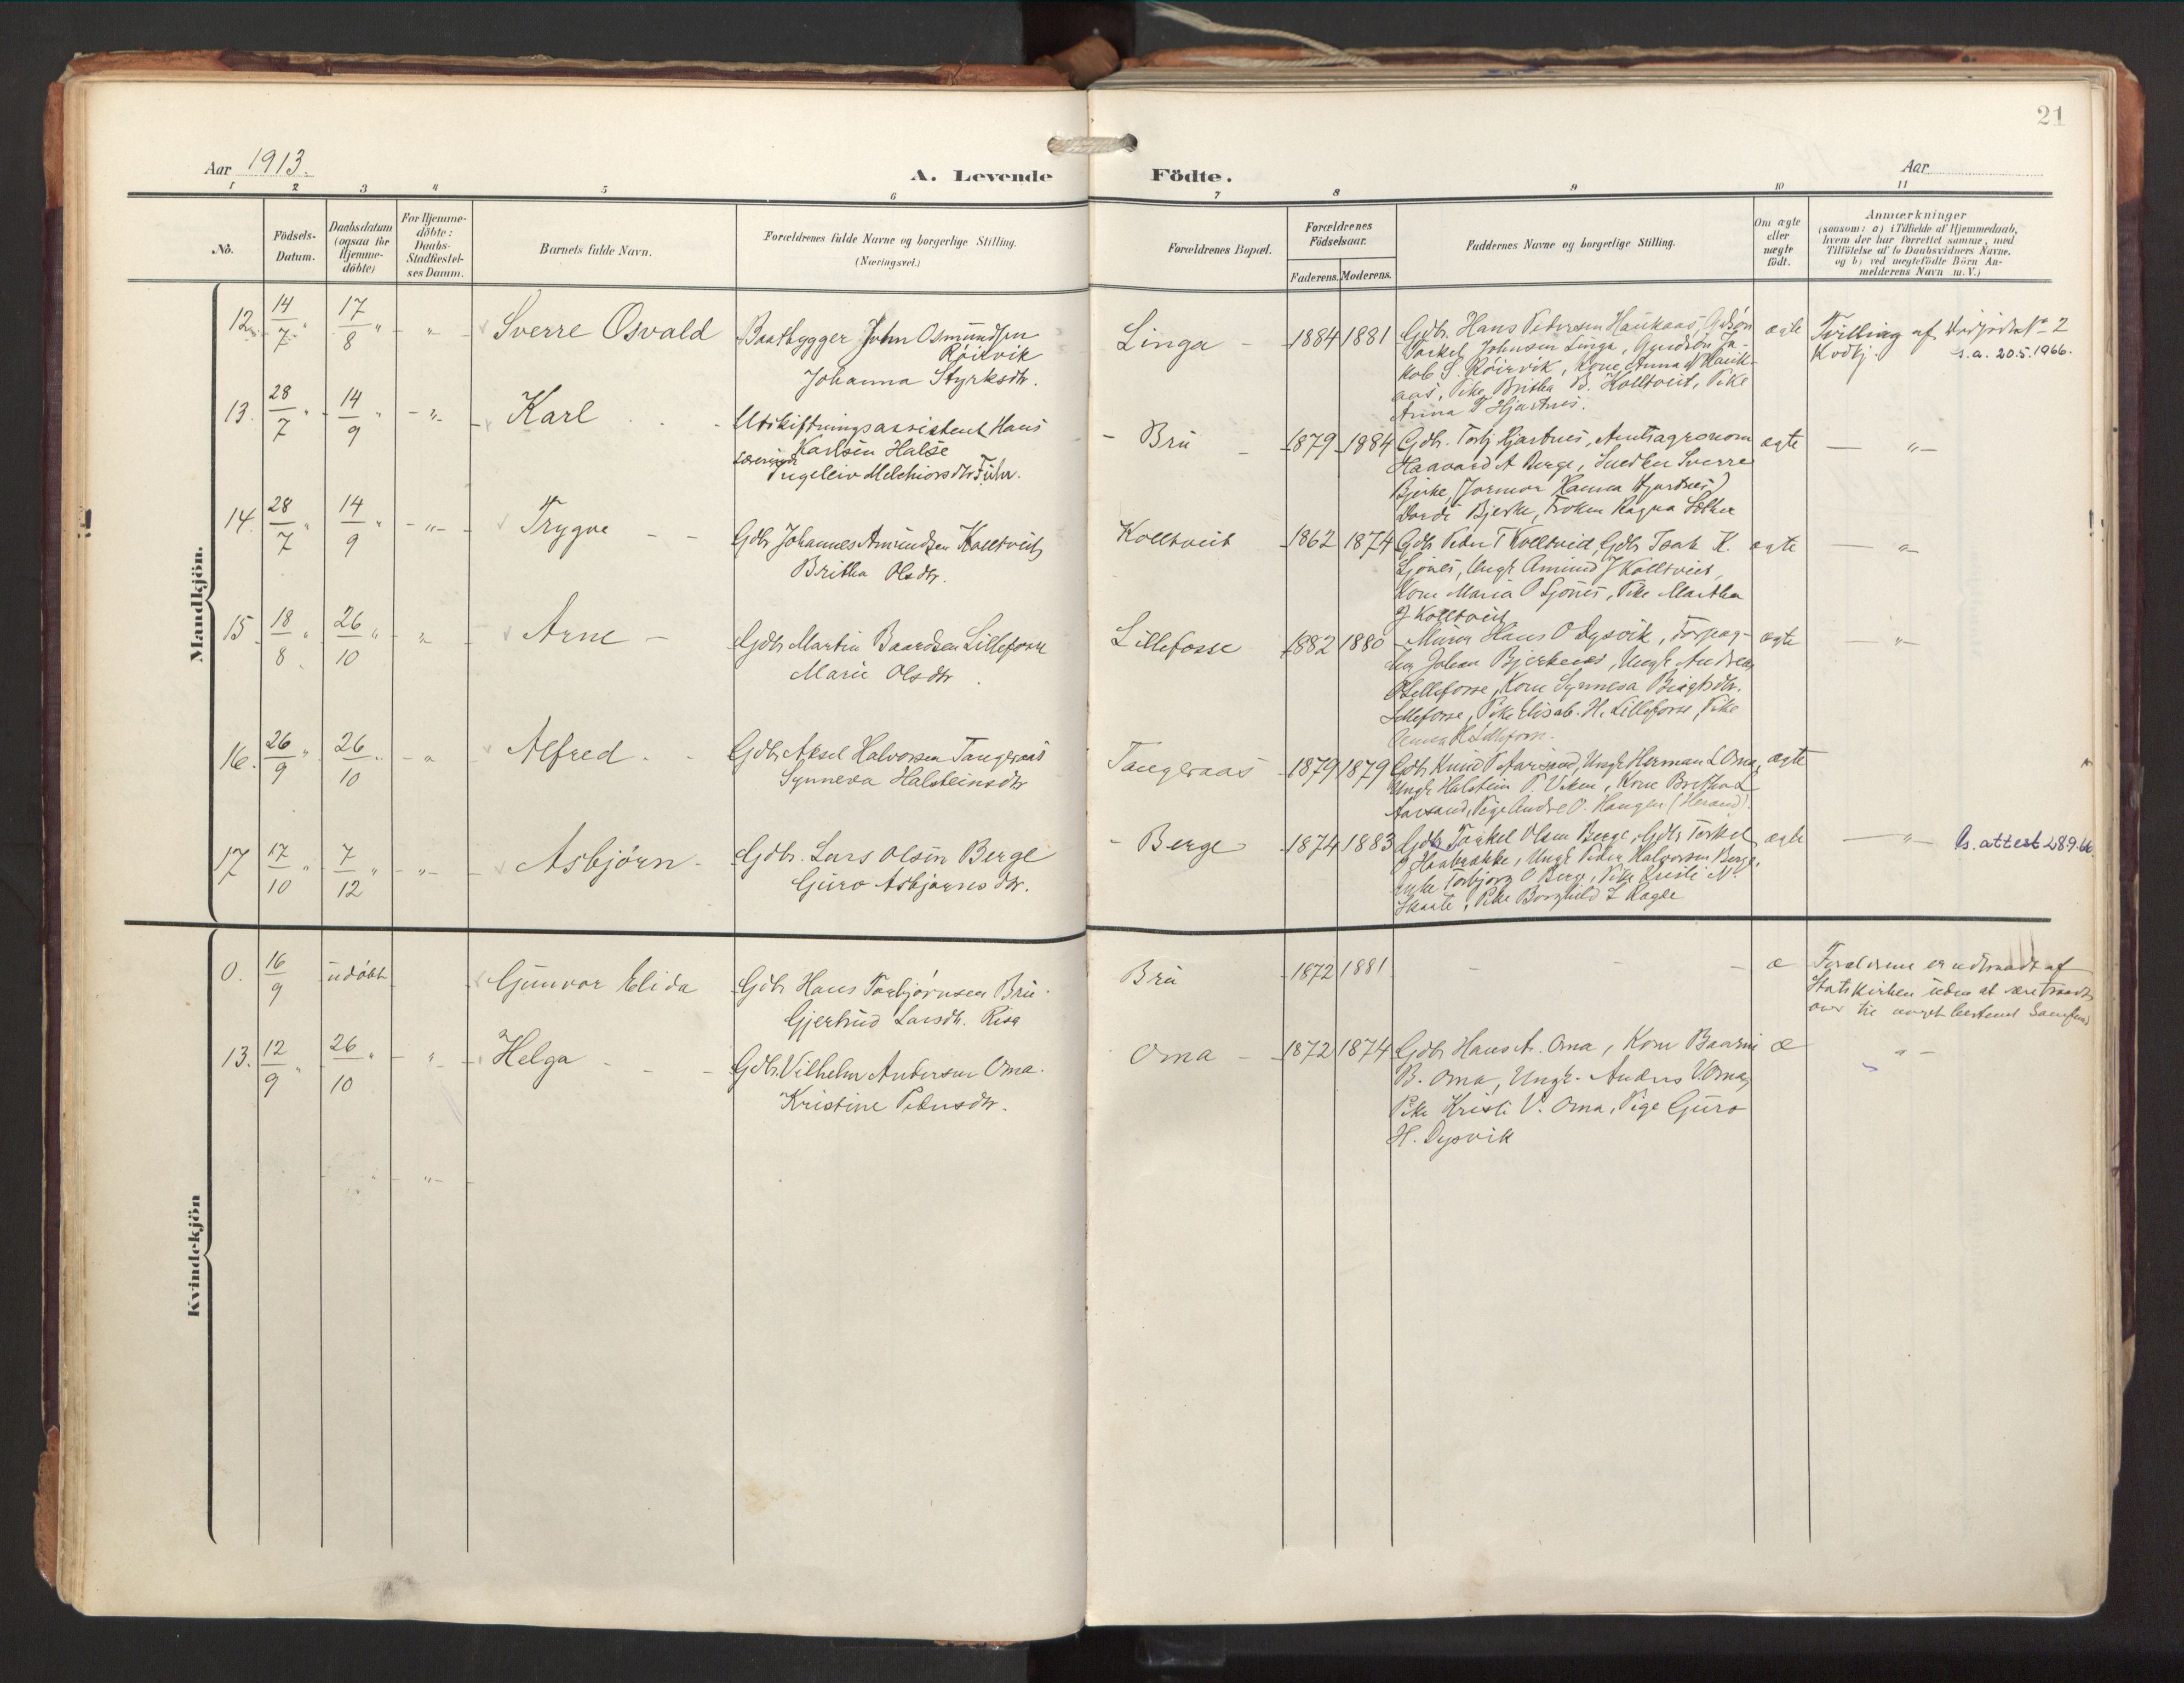 21
Aar 1913.
A. Levende Födte.
Aar
1 2 3 4 5 6 7 8 9 10 11
No.
Födsels-Datum.
Daabsdatum (ogsaa for Hjemme-döbte)
For Hjemme-döbte: Daabs-Stadfæstel-ses Datum.
Barnets fulde Navn.
Forældrenes fulde Navne og borgerlige Stilling.
(Næringsvei.)
Forældrenes Bopæl.
Forældrenes Födselsaar.
Faderens. Moderens.
Faddernes Navne og borgerlige Stilling.
Om ægte eller uægte födt.
Anmærkninger
(saasom: a) i Tilfælde af Hjemmedaab,
hvem der har forrettet samme, med
Tilföielse af to Daabsvidners Navne.
og b) ved uægtefödte Börn An-
melderens Navn m. V.)
Mandkjön.
12. 14/7 " 17/8 " - " - Sverre Osvald
Baatbygger John Osmundsen
Röirvik
Johanna Styrksdtr.
Linga - 1884 1881
Gdb. Hans Pedersen Haukaas, Gdsön
Torkel Johnsen Linga, Gaardsön Ja-
kob S. Röirvik, Kone Anna Hauk-
aas, Pike Britha B. Kolltveit, Pike
Anna T Hjartnes.
ægte
Tvilling af
Kvdkj.
s.a. 20.5.1966.
13. 28/7 " 14/9 " - " - Karl
Utskiftningsassistent Hans
Karlsen Halse
Lærerinde
Ingeleiv Melchiorsdtr Führ.
- Bru - 1879 1884
Gdb. Torbj Hjartnes, Amtsagronom
Haavard A Berge, Snedker Sverre
Bjerke, (Jormor Hanna Hjartnes)
Dordi Bjerke, Fröken Ragna
ægte - " -
14. 28/7 " 14/9 " - " - Trygve - -
Gdb Johannes Amundsen Kolltveit
Britha Olsdtr.
Kolltveit 1862 1874
Gdb Peder T Kolltveid, Gdb Isak K.
Sjönes, Ungk Amund J Kolltveit,
Kone Maria O Sjönes, Pike Martha
J Kolltveit
ægte - " -
15 18/8 " 26/10 " " Arne -
Gdb Martin Baardsen Lillefosse
Marie Olsdtr
Lillefosse 1882 1880
Murer Hans O Dysvik, Forpag-
ter Johan Bjerkenes, Ungk Andreas
O Lillefosse, Kone Synneva Brigtsdtr.
Lillefosse, Pike Elisab. H. Lillefosse, Pike
Anna H Lillefosse.
ægte - " -
16. 26/9 " 26/10 " - " Alfred - -
Gdb Aksel Halvorsen Tangeraas
Synneva Halsteinsdtr
Tangeraas - 1879 1879
Gdb Knud P Aarsand, Ungk Herman L Oma,
Ungk Halstein P. Viken, Kone Britha L
Aarsand, Pige Andre O. Haugen (Herand).
ægte
17 17/10 " 7/12 " - " - Asbjörn -
Gdb. Lars Olsen Berge
Guro Asbjörnsdtr.
- Berge 1874 1883
Gdb Torkel Olsen Berge, Gdb Torkel
Haabrekke, Ungk Peder Halvorsen Berge,
Enke Torbjörg O Berge, Pike Kristi N.
Skaate, Pike Borghild L Ragde
ægte - " - Ls. attest 28.9.66.
Kvindekjön
0. 16/9 udöbt Gunvor Elida
Gdb Hans Torbjörnsen Bru.
Gjertrud Larsdtr. Risa
Bru 1872 1881 - - - æ
Forældrene er udtraadt af
Statskirken uden at være traadt
over til noget bestemt Samfund
13. 12/9 " 26/10 " - " - Helga - - -
Gdb. Vilhelm Andersen Oma.
Kristine Pedersdtr.
Oma - 1872 1874
Gdb Hans A. Oma, Kone Baarni
B. Oma, Ungk. Anders V. Oma,
Pike Kristi V. Oma, Pige Guro
H. Dysvik
æ - " -
- " -